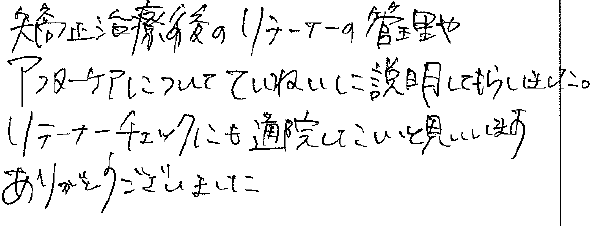 矯正治療の後のリテーナーの管理や
アフターケアについてていねいに説明してもらいました。
リテーナーチェックにも通院したいと思います
ありがとうございました